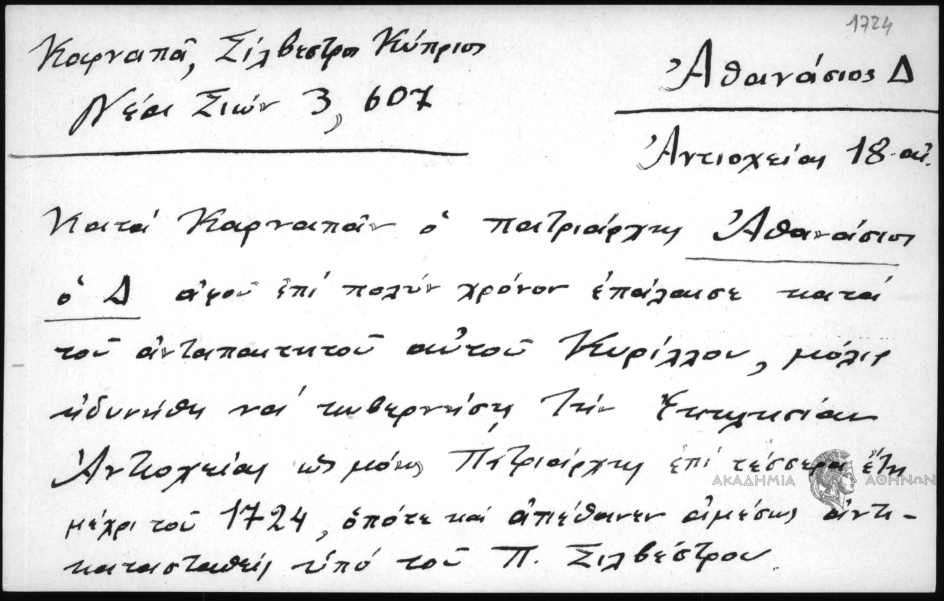 1724
Καρναπᾶ, Σίλβεστρος Κύπριος
Νέα Σιών 3, 607
Ἀθανάσιος Δ
Ἀντιοχείας 18 αἰ.
Κατά Καρναπᾶν ὁ πατριάρχης Ἀθανάσιος
ὁ Δ ἀφοῦ ἐπί πολύν χρόνον ἐπάλαισε κατά
τοῦ ἀνταπαιτητοῦ αὐτοῦ Κυρίλλου, μόλις
ἠδυνήθη νά κυβερνήσῃ τήν Ἐκκλησίαν
Ἀντιοχείας ὡς μόνος Πατριάρχης ἐπί τέσσερα ἔτη
ΑΚΑΔΗΜΙΑ ΑΘΗΝΩΝ
μέχρι τοῦ 1724, ὁπότε καί ἀπέθανεν ἀμέσως ἀντι-
κατασταθείς ὑπό τοῦ Π. Σιλβέστρου